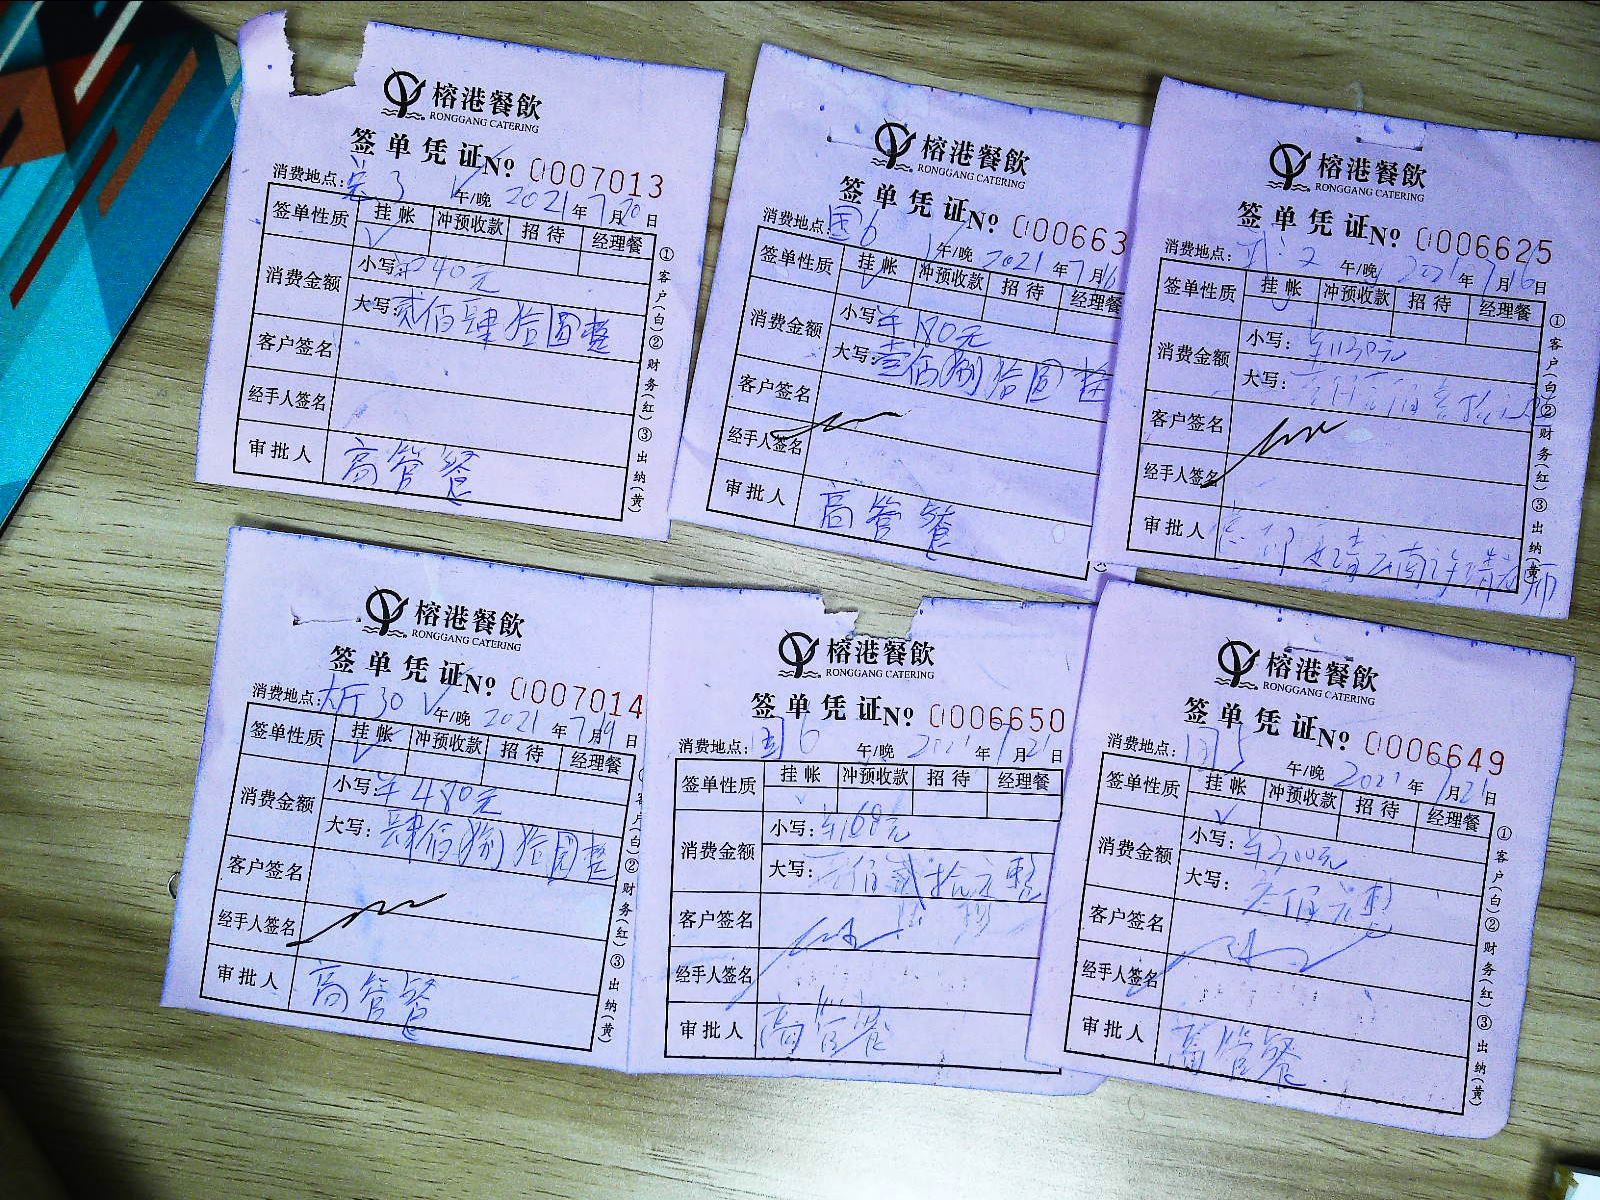 榕港餐飲
RONGGANG CATERING
签单凭证 Nº 0007013
消费地点: 3 午/晚 2021年7月20日
签单性质 挂帐 冲预收款 招待 经理餐
消费金额 小写: 240元
大写: 贰佰肆拾圆整
客户签名
经手人签名
审批人 高管餐
①客户(白)②财务(红)③出纳(黄)
榕港餐飲
RONGGANG CATERING
签单凭证 Nº 000663
消费地点: 国6 午/晚 2021年7月16
签单性质 挂帐 冲预收款 招待 经理餐
消费金额 小写: ¥180元
大写: 壹佰捌拾圆整
客户签名
经手人签名
审批人 高管餐
榕港餐飲
RONGGANG CATERING
签单凭证 Nº 0006625
消费地点: 午/晚 2021年7月16日
签单性质 挂帐 冲预收款 招待 经理餐
消费金额 小写: ¥1130元
大写:
客户签名
经手人签名
审批人
①客户(白)②财务(红)③出纳(黄)
榕港餐飲
RONGGANG CATERING
签单凭证 Nº 0007014
消费地点: 大厅30 午/晚 2021年7月19日
签单性质 挂帐 冲预收款 招待 经理餐
消费金额 小写: ¥480元
大写: 肆佰捌拾圆整
客户签名
经手人签名
审批人 高管餐
客户(白)②财务(红)③出纳(黄)
榕港餐飲
RONGGANG CATERING
签单凭证 Nº 0006650
消费地点: 国6 午/晚 2021年7月21日
签单性质 挂帐 冲预收款 招待 经理餐
消费金额 小写: ¥168元
大写: 元整
客户签名
经手人签名
审批人 高管餐
榕港餐飲
RONGGANG CATERING
签单凭证 Nº 0006649
消费地点: 国5 午/晚 2021年7月21日
签单性质 挂帐 冲预收款 招待 经理餐
消费金额 小写: ¥300元
大写: 叁佰元整
客户签名
经手人签名
审批人 高管餐
①客户(白)②财务(红)③出纳(黄)